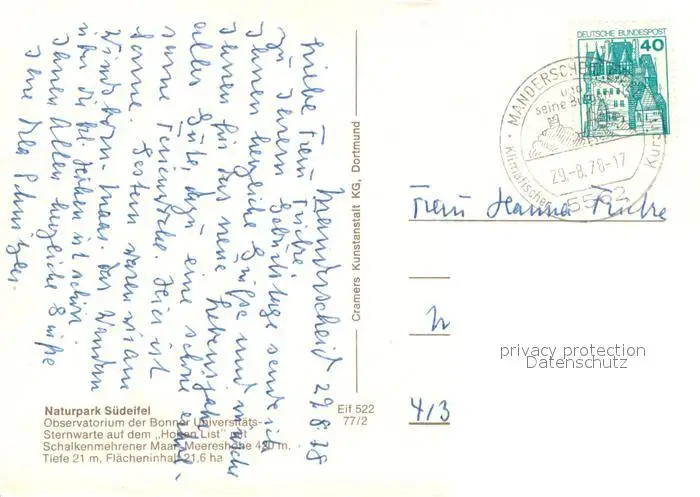 Manderscheid 29.8.78
Liebe Frau Fricke,
zu Ihrem Geburtstage sende ich
Ihnen herzliche Grüße und wünsche
Ihnen für das neue Lebensjahr
alles Gute, dazu eine schöne
Ferienwoche. Hier ist
Sonne. Gestern waren wir am
Windsborn-Maar. Das Wandern
über die Höhen ist schön.
Ihnen Allen herzliche Grüße
Ihre
Naturpark Südeifel
Observatorium der Bonner Universitäts-
Sternwarte auf dem „Hohen List" mit
Schalkenmehrener Maar, Meereshöhe 420 m.
Tiefe 21 m, Flächeninhalt 21,6 ha
Eif 522
77/2
Cramers Kunstanstalt KG, Dortmund
DEUTSCHE BUNDESPOST
40
MANDERSCHEID
und
seine Burgen
29.-8.78-17
Klimatischer Kurort
5562
Frau Hanna Fricke
4/3
privacy protection
Datenschutz